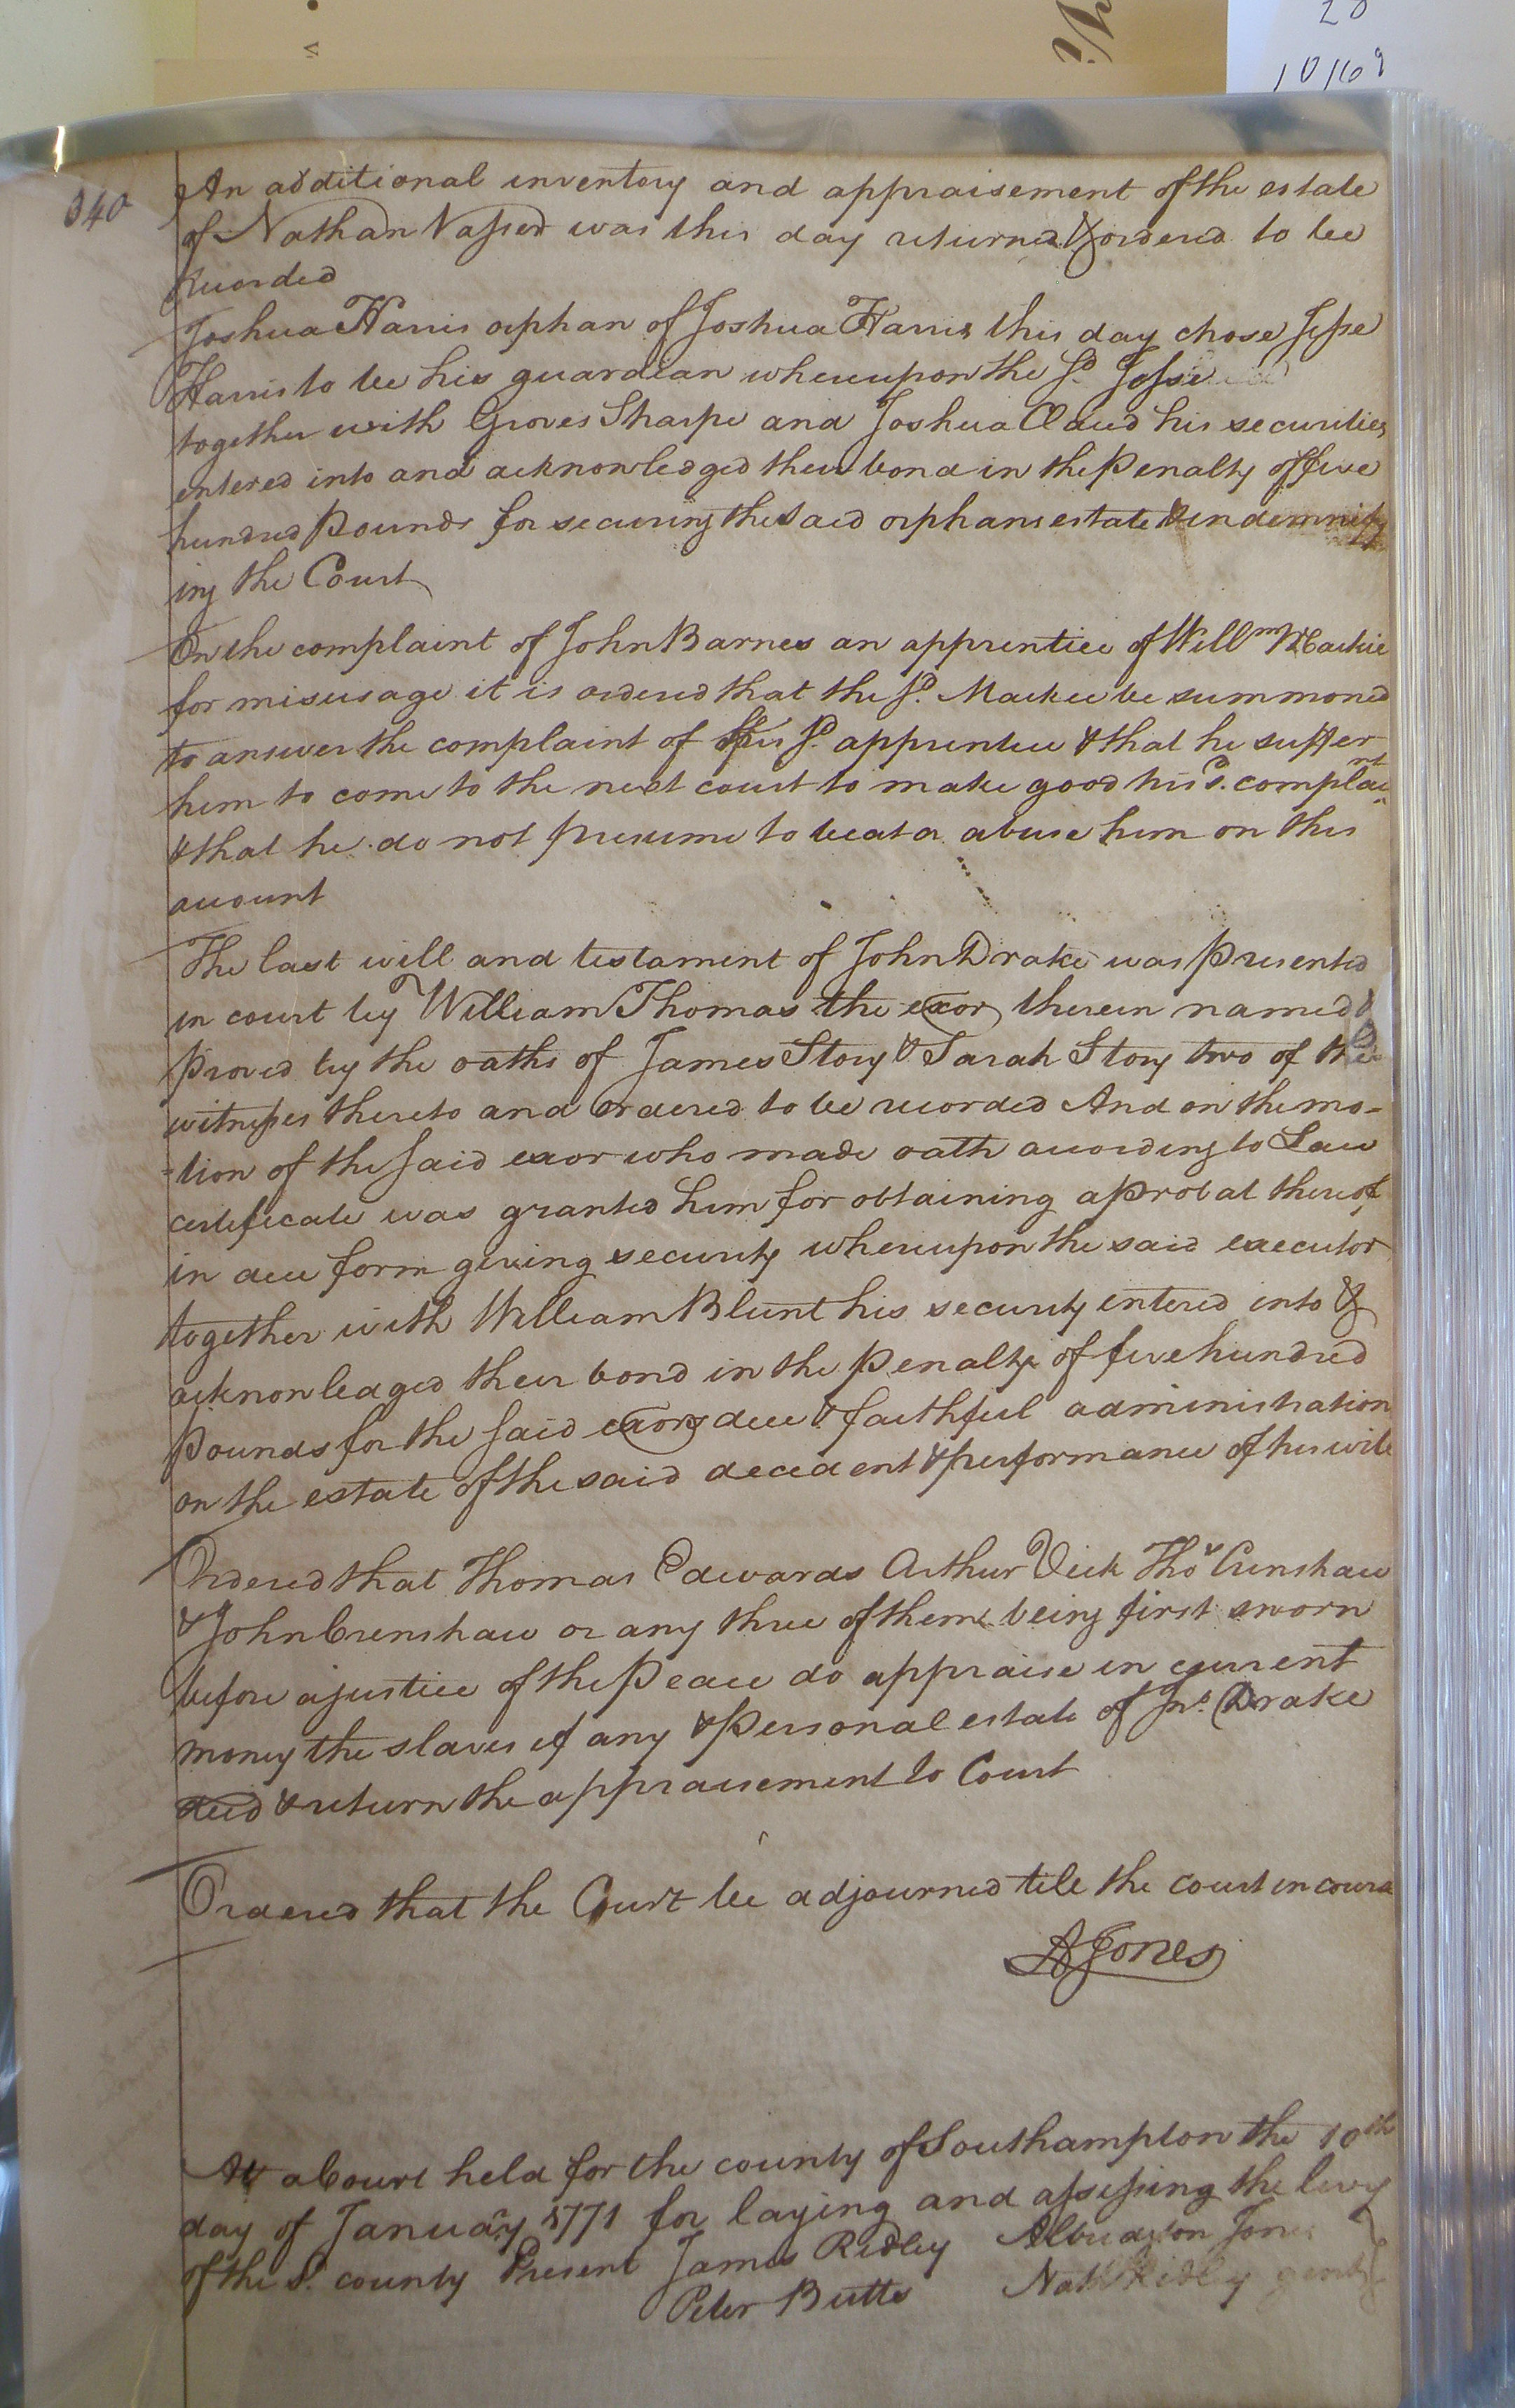 20
10/169
340
An additional inventory and appraisement of the estate
of Nathan Vasser was this day returned & ordered to be
recorded
Joshua Harris orphan of Joshua Harris this day chose Jesse
Harris to be his guardian whereupon the sd. Jesse
together with Groves Sharpe and Joshua Claud his securities
entered into and acknowledged their bond in the Penalty of five
hundred Pounds for securing the said orphans estate & indemnify
ing the Court
On the complaint of John Barnes an apprentice of Willm Mackie
for misusage it is ordered that the sd. Mackie be summoned
to answer the complaint of his sd. apprentice & that he suffer
him to come to the next court to make good his sd. complaint
& that he do not presume to beat or abuse him on this
account
The last will and testament of John Drake was Presented
in court by William Thomas the exor therein named &
Proved by the oaths of James Story & Sarah Story two of the
witnesses thereto and ordered to be recorded And on the mo-
-tion of the said exor who made oath according to Law
certificate was granted him for obtaining a Probat thereof
in due form giving security whereupon the said executor
together with William Blunt his security entered into &
acknowledged their bond in the Penalty of five hundred
Pounds for the said exors due & faithful administration
on the estate of the said decedent & performance of his will
Ordered that Thomas Edwards Arthur Vick Thos Crenshaw
& John Crenshaw or any three of them being first sworn
before a justice of the Peace do appraise in current
money the slaves if any & Personal estate of Jno. Drake
decd & return the appraisement to Court
Ordered that the Court be adjourned till the court in course
A Jones
At a Court held for the county of Southampton the 10th
day of January 1771 for laying and assessing the levy
of the sd. county Present James Ridley Albridgton Jones
Peter Butts Nathl Ridley gent